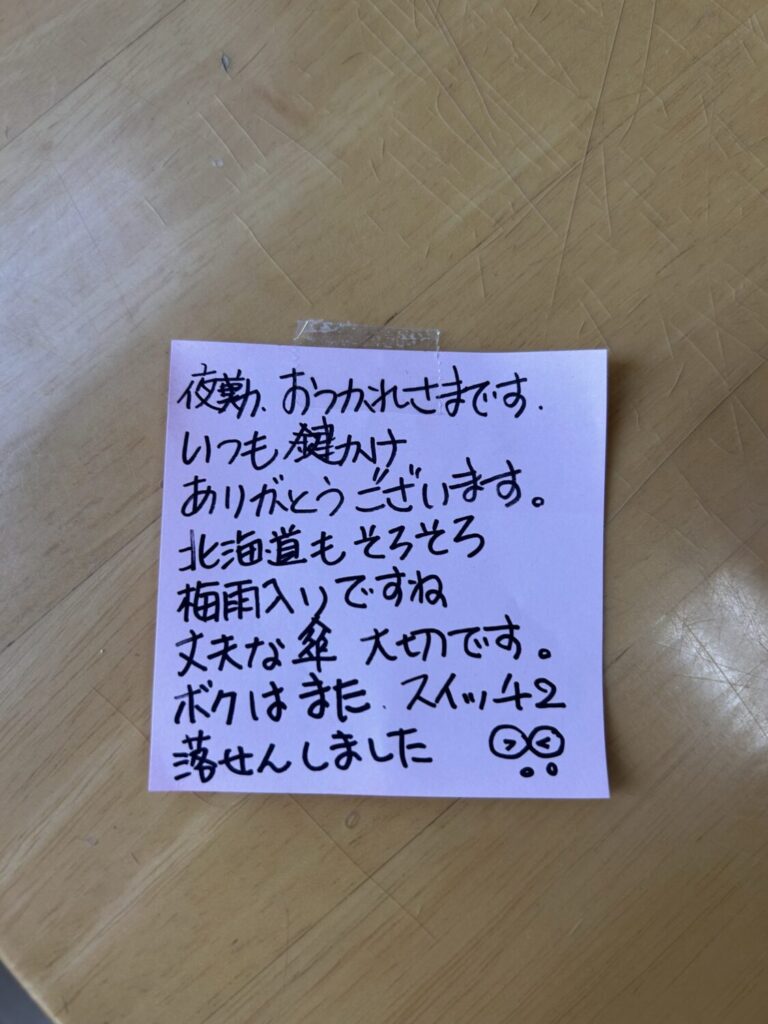 夜勤、おつかれさまです.
いつも鍵かけ
ありがとうございます。
北海道もそろそろ
梅雨入りですね
丈夫な傘 大切です。
ボクはまた、スイッチ2
落せんしました